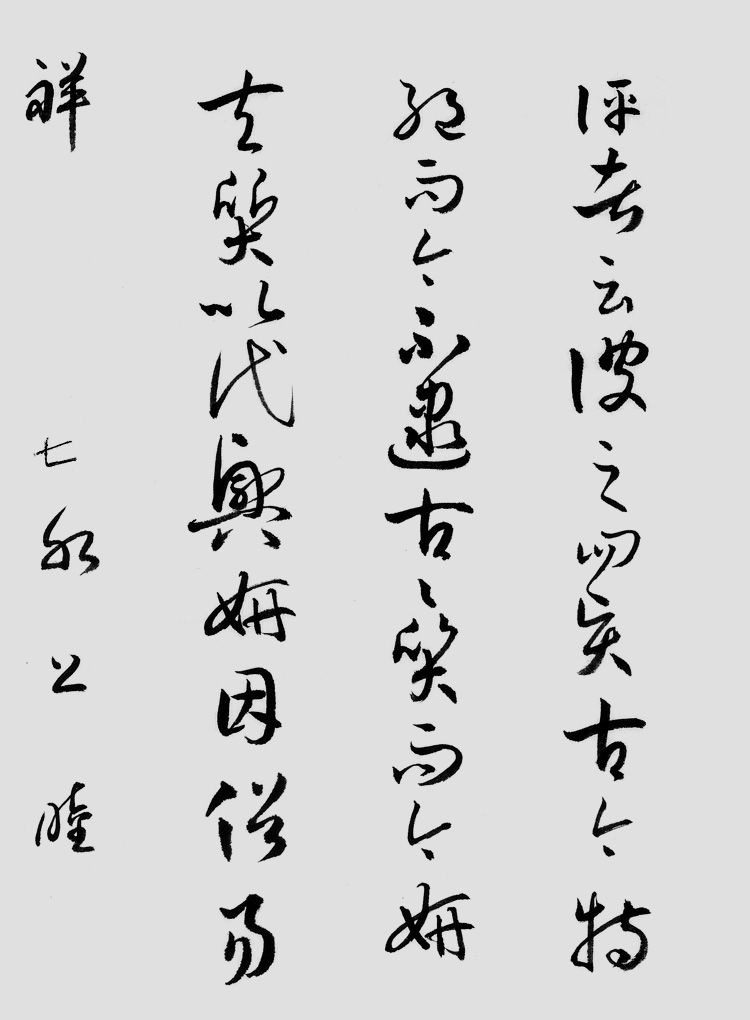 評者云彼之四賢古今特
絕而今不逮古〻質而今妍
夫質以代興妍因俗易
祥